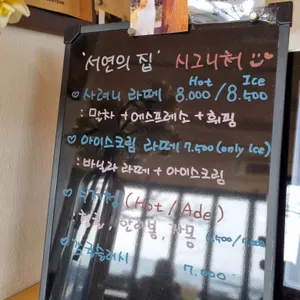 '서연의 집' 시그니처
Hot Ice
사려니 라떼 8.000/8.500
: 말차 + 에스프레소 + 휘핑
아이스크림 라떼 7.500 (only Ice)
: 바닐라 라떼 + 아이스크림
(Hot / Ade)
한라봉, 자몽
슬러시 7.000